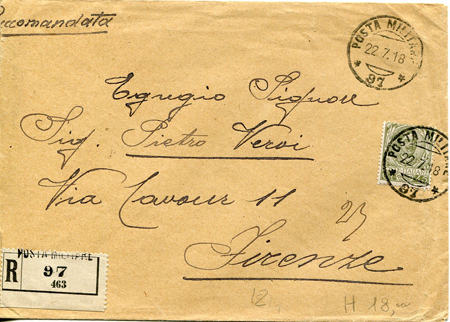 Raccomandata
POSTA MILITARE
22.7.18
97
Egregio Signore
Sig. Pietro Vervi
Via Cavour 11
Firenze
POSTA MILITARE
22.7.18
97
23
POSTA MILITARE
R 97
463
12
H 18,00